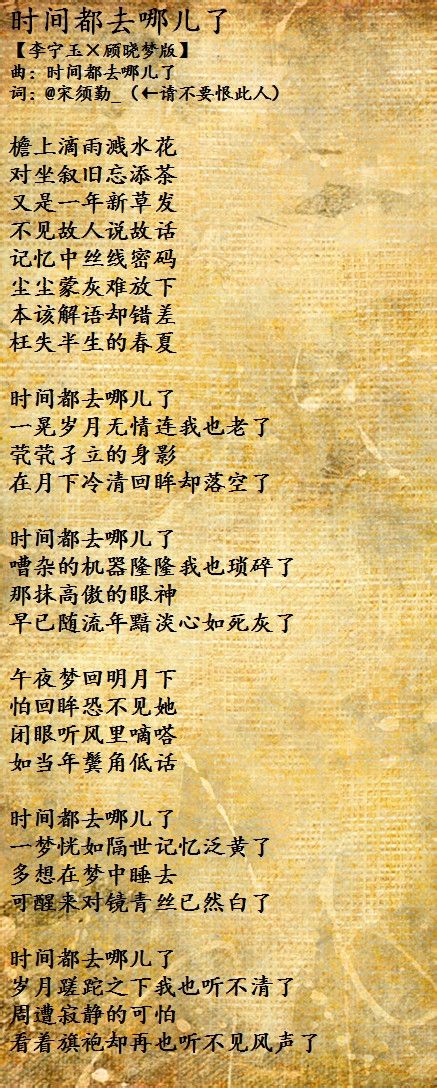 时间都去哪儿了
【李宁玉×顾晓梦版】
曲：时间都去哪儿了
词：@宋须勤_（←请不要恨此人）
檐上滴雨溅水花
对坐叙旧忘添茶
又是一年新草发
不见故人说故话
记忆中丝线密码
尘尘蒙灰难放下
本该解语却错差
枉失半生的春夏
时间都去哪儿了
一晃岁月无情连我也老了
茕茕孑立的身影
在月下冷清回眸却落空了
时间都去哪儿了
嘈杂的机器隆隆我也琐碎了
那抹高傲的眼神
早已随流年黯淡心如死灰了
午夜梦回明月下
怕回眸恐不见她
闭眼听风里嘀嗒
如当年鬓角低话
时间都去哪儿了
一梦恍如隔世记忆泛黄了
多想在梦中睡去
可醒来对镜青丝已然白了
时间都去哪儿了
岁月蹉跎之下我也听不清了
周遭寂静的可怕
看着旗袍却再也听不见风声了